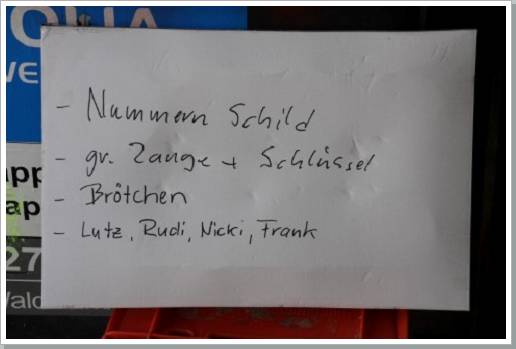 OLIA
WE
pp
ap
27
Wald
- Nummern Schild
- gr. Zange + Schlüssel
- Brötchen
- Lutz, Rudi, Nicki, Frank